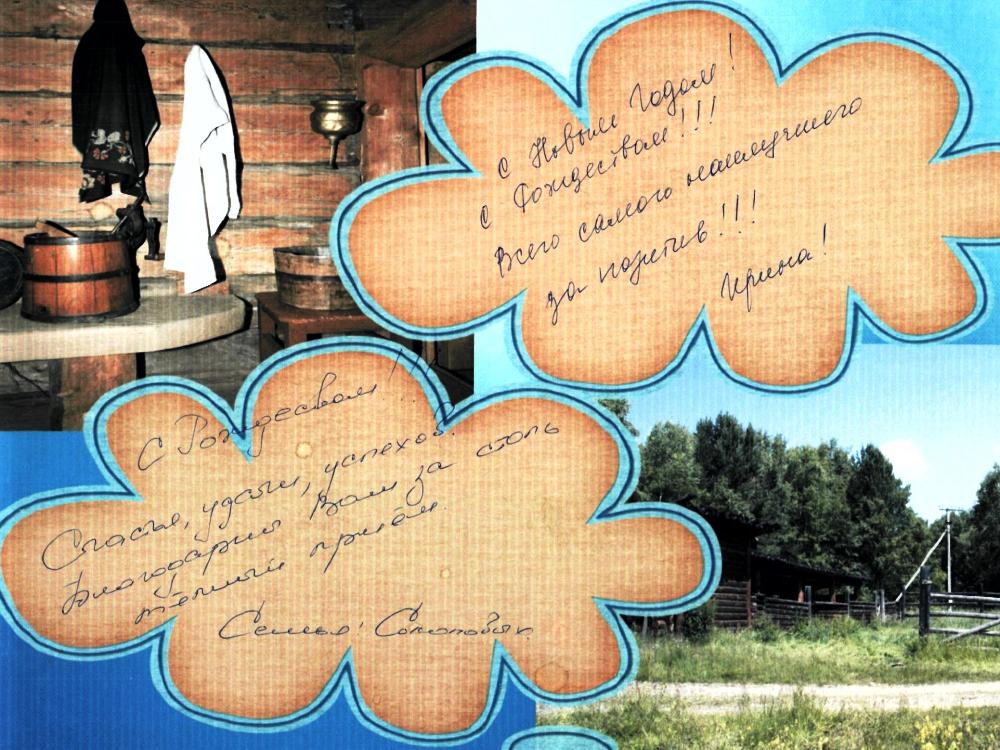 С Новым Годом!
С Рождеством!!!
Всего самого наилучшего
за позитив!!!
Ирина!
С Рождеством!!!
Счастья, удачи, успехов.
Благодарим Вам за столь
тёплый приём.
Семья